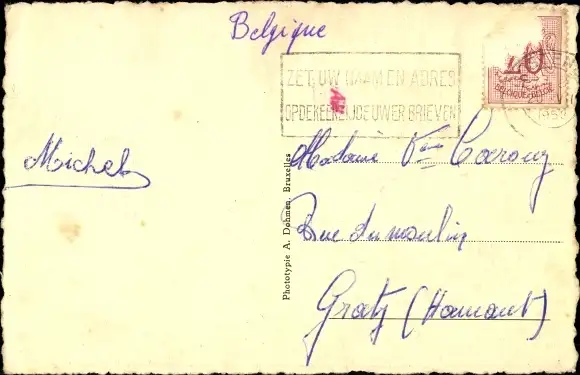 Belgique
ZET UW NAAM EN ADRES
OP DE KEERZIJDE UWER BRIEVEN
BELGIQUE-BELGIE
Michel
Madame Vve
Rue du moulin
Graty (Hainaut)
Phototypie A. Dohmen, Bruxelles